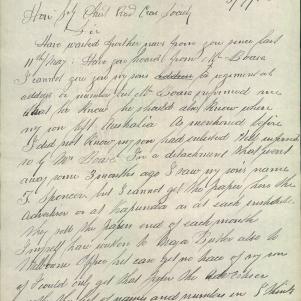 Hon. Sec. Red Cross Society
Sir
Have waited further news from you since last
11th May. Have you heard from Mr
I cannot give you my sons regimental
address or number but Mr informed me
that he knew he should also know where
my son left Australia As mentioned before
I did not know my son had enlisted till informed
so by Mr In a detachment that went
away some 3 months ago I saw my sons name
F. Spencer but I cannot get the paper here the
or at Kapunda as at each
Why not the papers end of each month
I myself have written to Major also to
Melbourne Office but can get no trace of my son
if I could only get that paper the
of names and numbers on I think